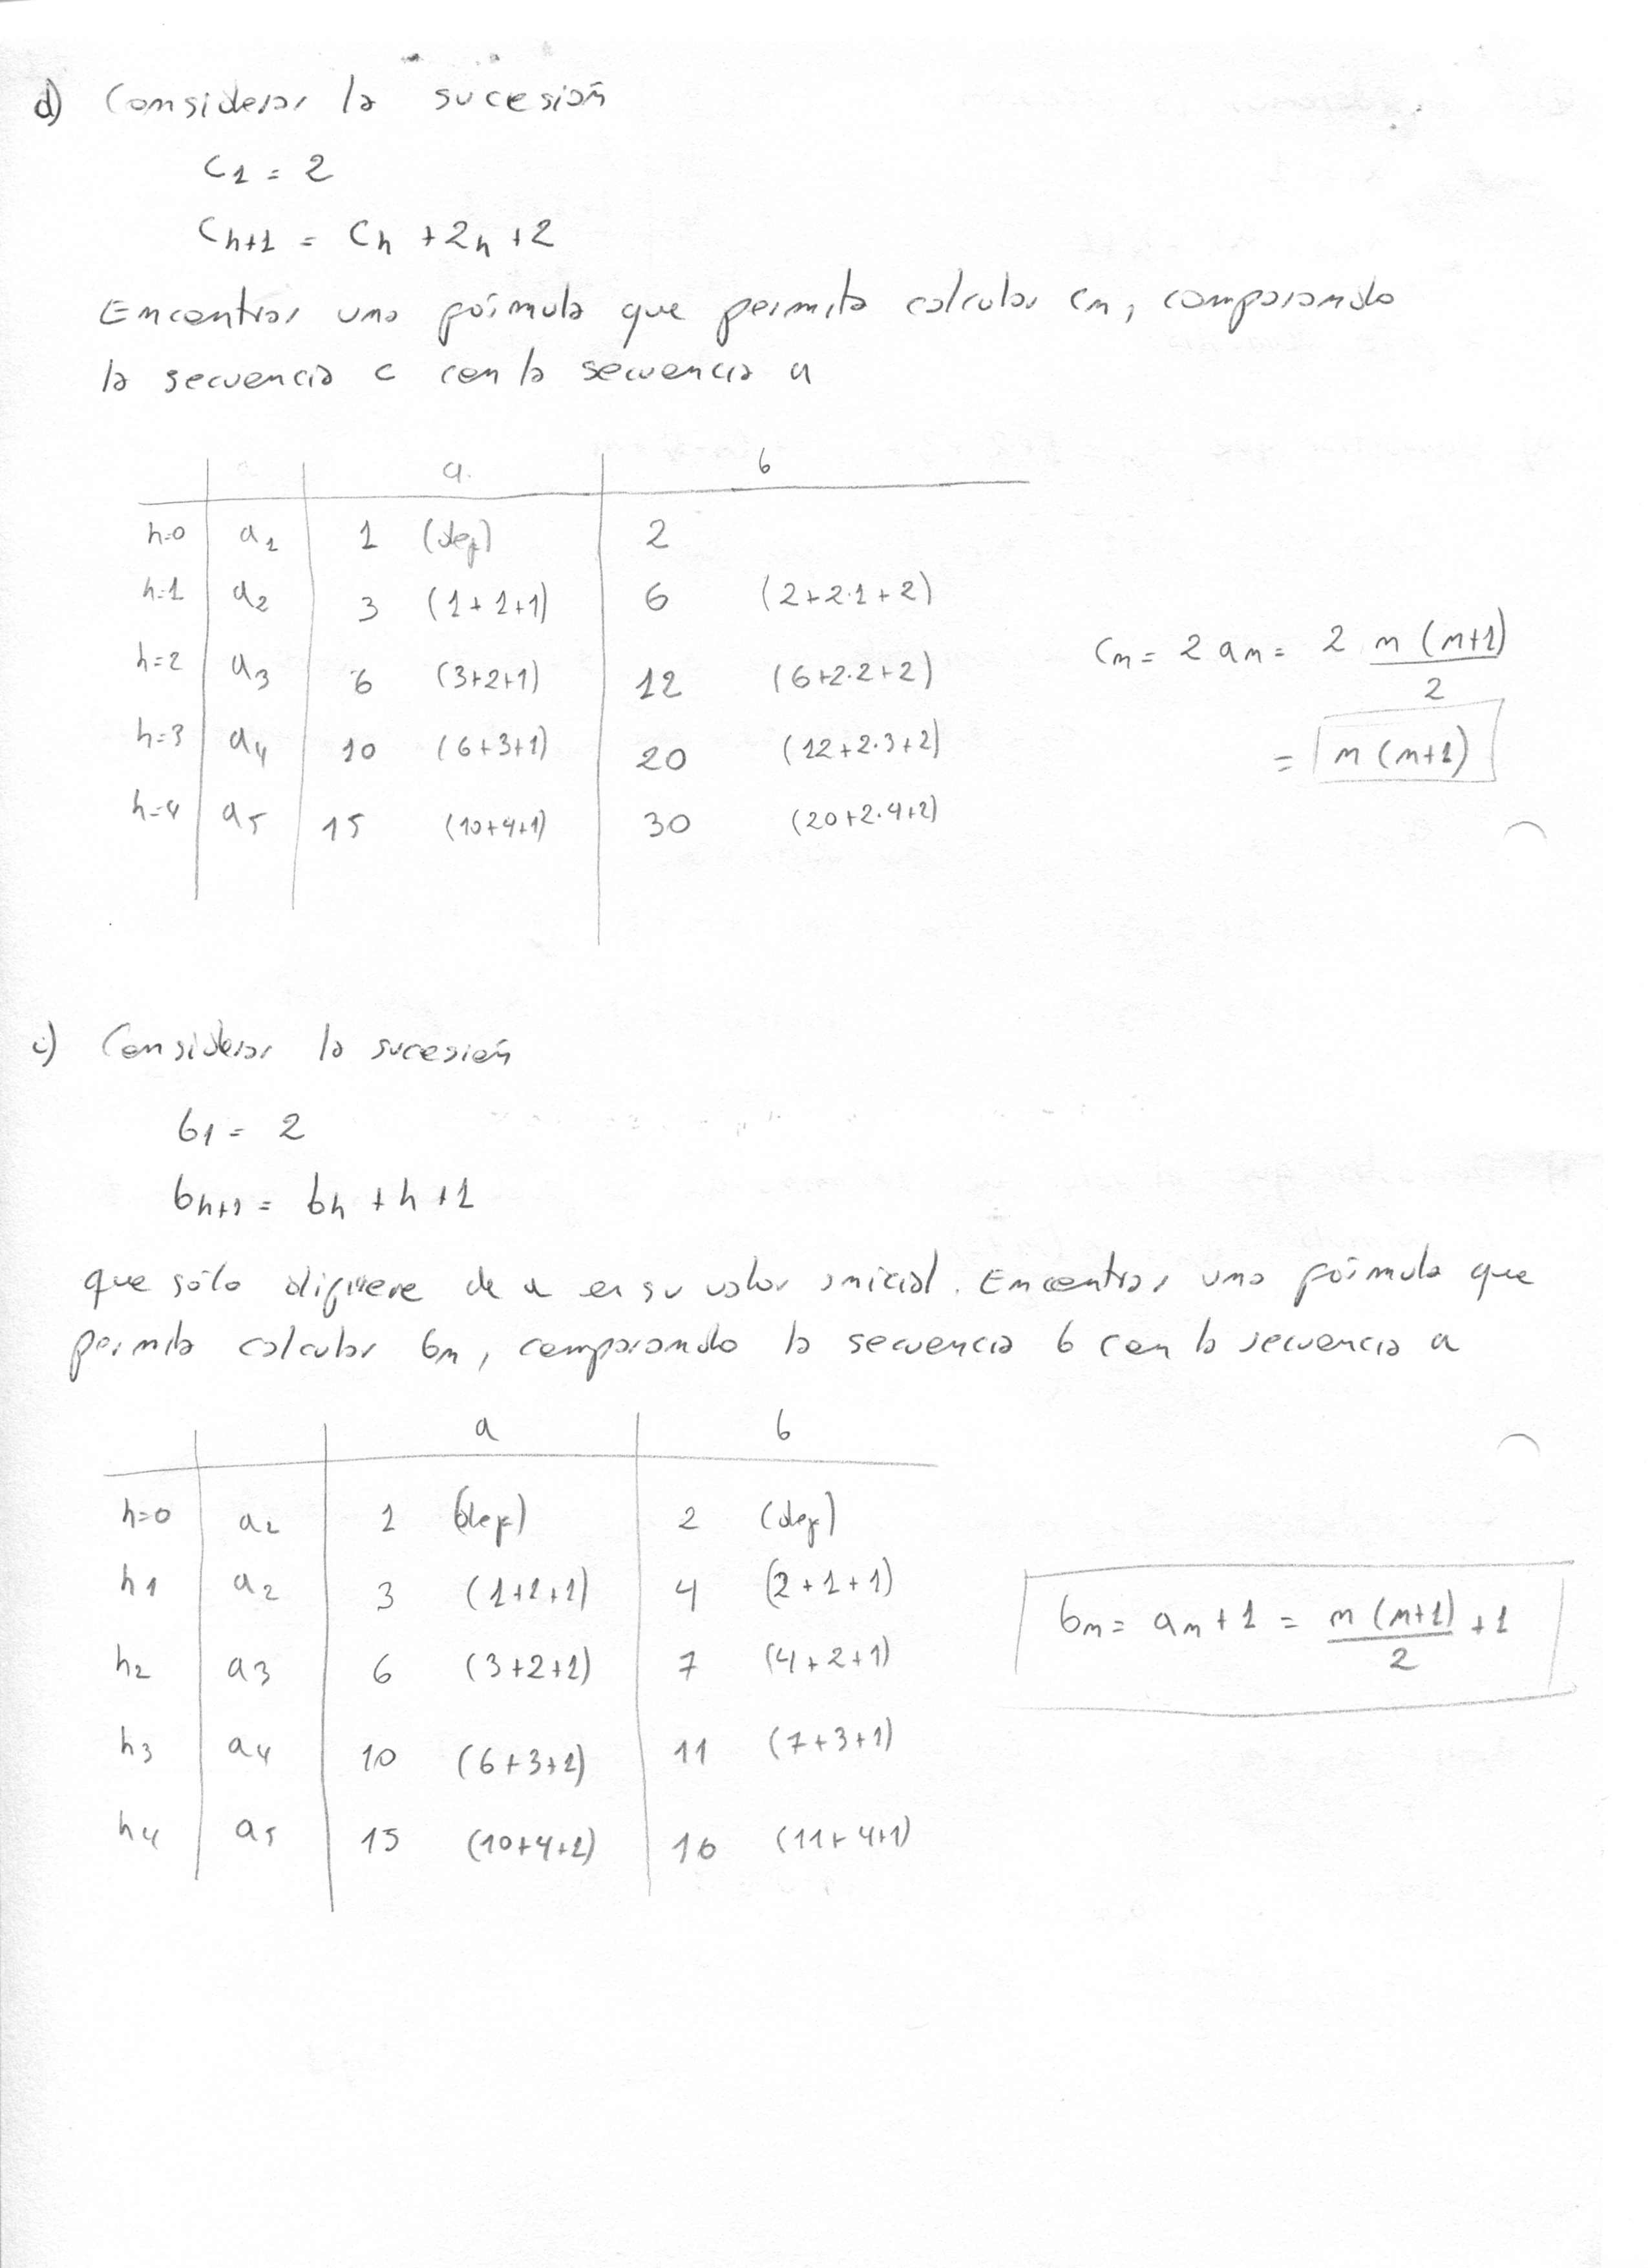 d) Considerar la sucesión
C1 = 2
Ch+1 = Ch + 2h + 2
Encontrar una fórmula que permita calcular Cn, comparando
la secuencia c con la secuencia a
a b
h=0 a1 1 (def) 2
h=1 a2 3 (1+1+1) 6 (2+2·1+2)
h=2 a3 6 (3+2+1) 12 (6+2·2+2)
h=3 a4 10 (6+3+1) 20 (12+2·3+2)
h=4 a5 15 (10+4+1) 30 (20+2·4+2)
Cn = 2 an = 2 n (n+1)
2
= n (n+1)
c) Considerar la sucesión
b1 = 2
bh+1 = bh + h + 1
que sólo difiere de a en su valor inicial. Encontrar una fórmula que
permita calcular bn, comparando la secuencia b con la secuencia a
a b
h=0 a1 1 (def) 2 (def)
h1 a2 3 (1+1+1) 4 (2+1+1)
h2 a3 6 (3+2+1) 7 (4+2+1)
h3 a4 10 (6+3+1) 11 (7+3+1)
h4 a5 15 (10+4+1) 16 (11+4+1)
bn = an + 1 = n (n+1) + 1
2